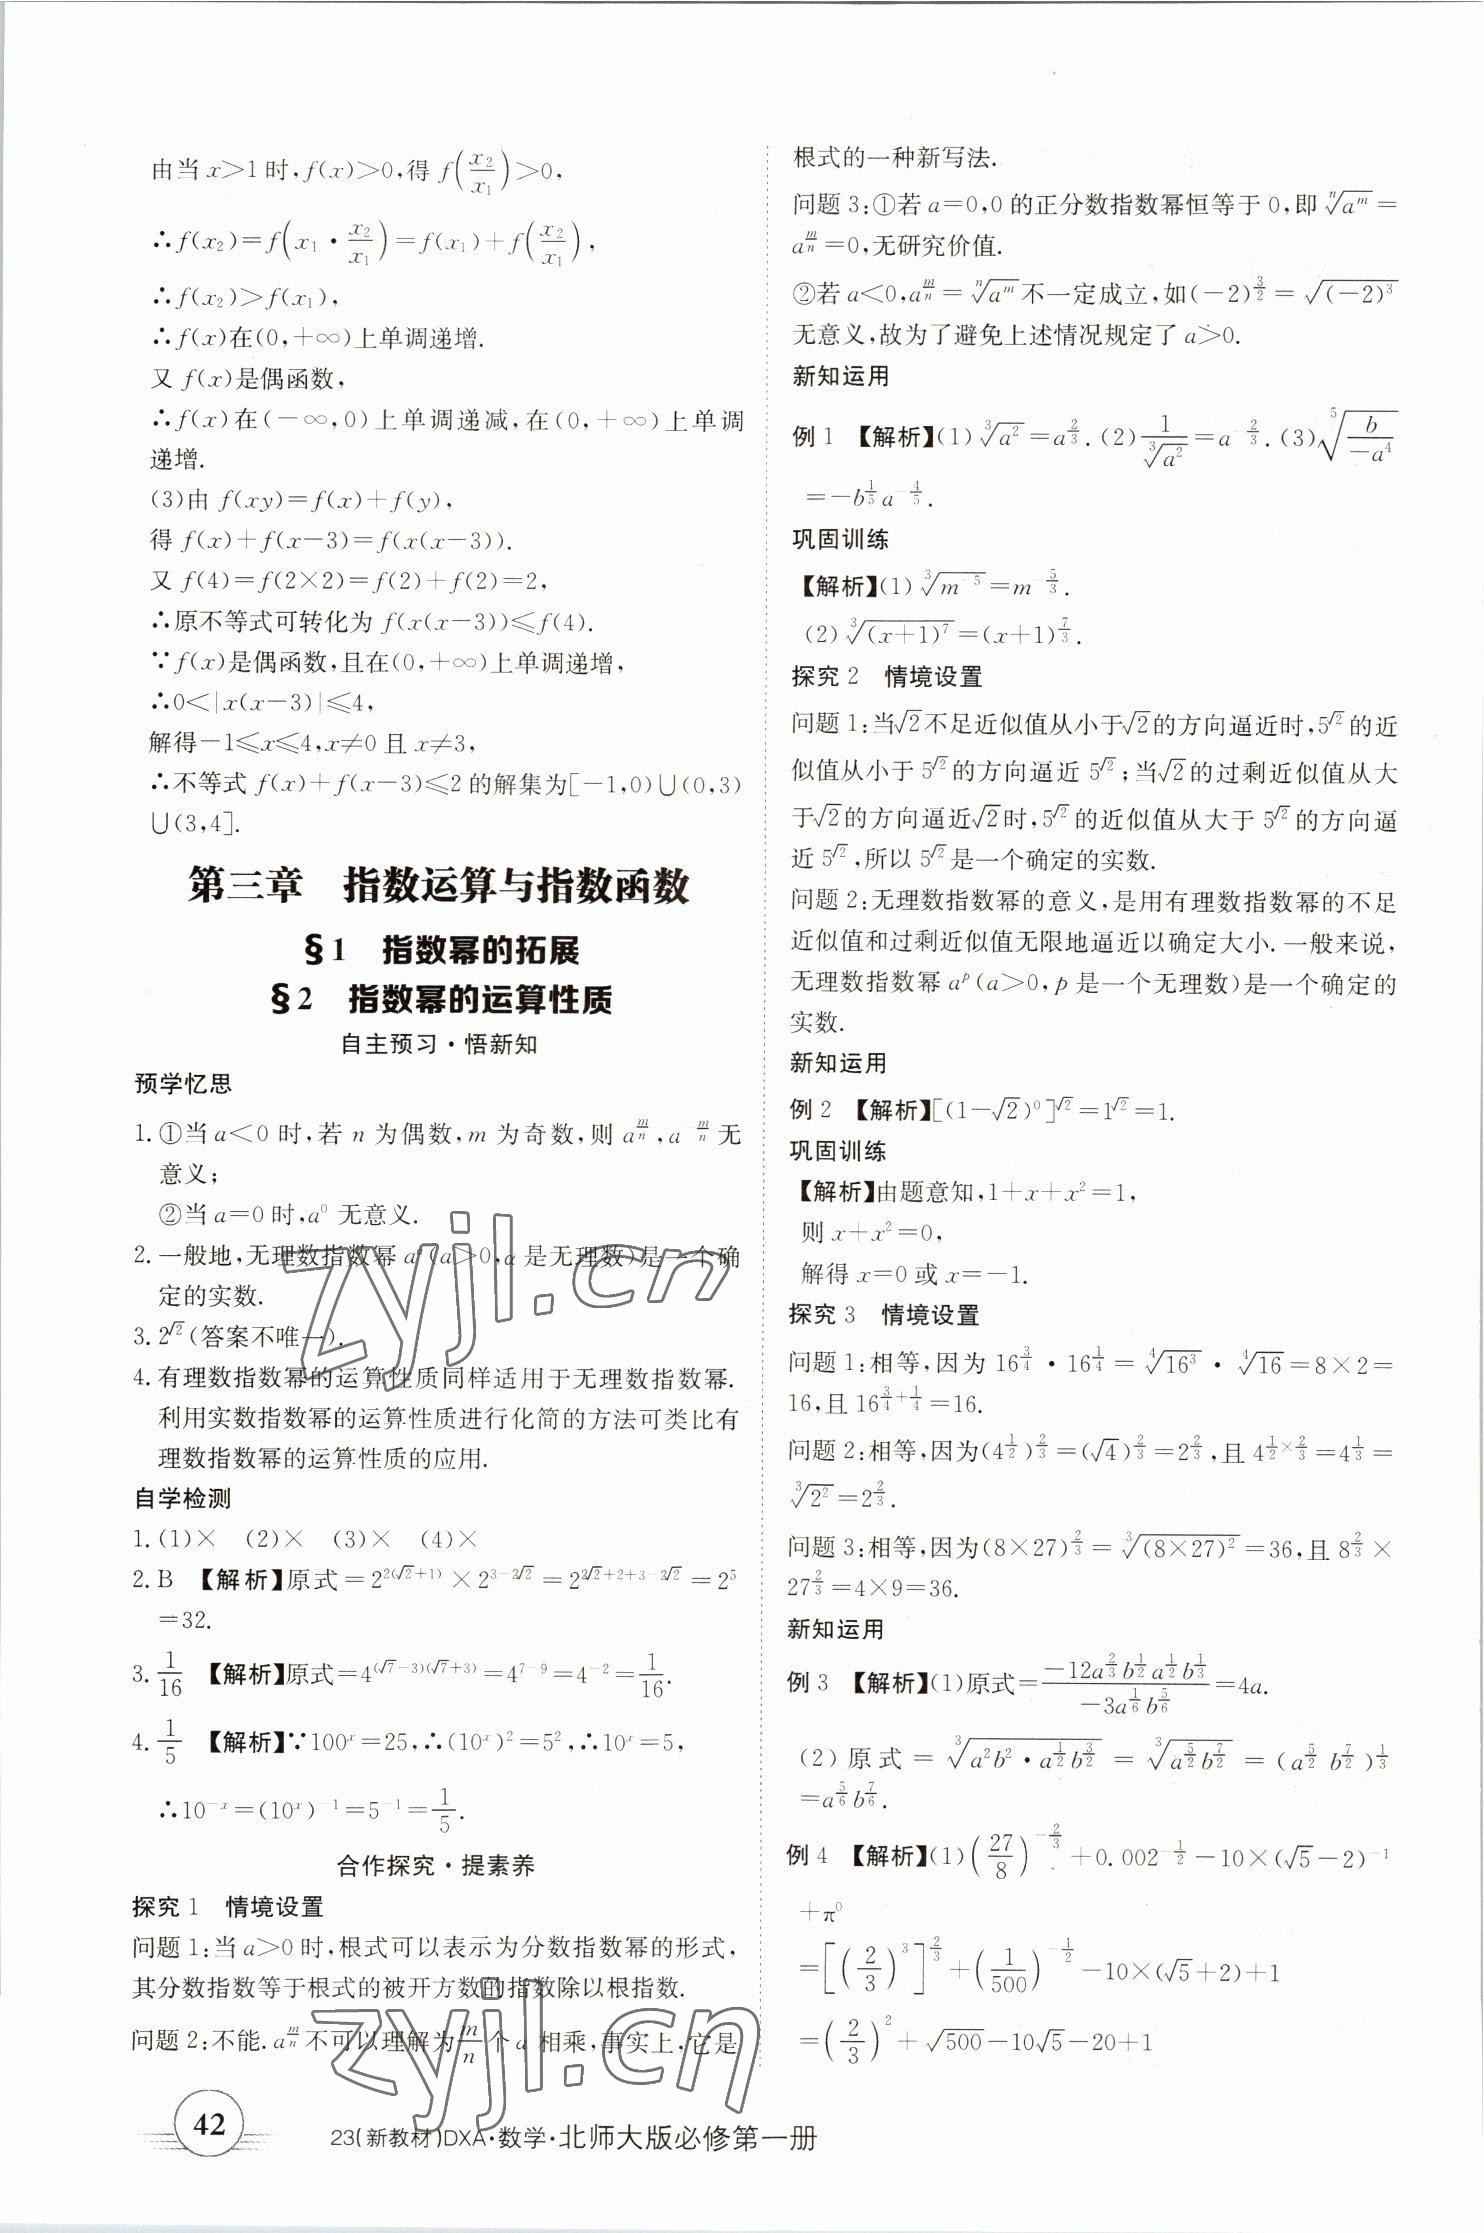 由当 x>1 时,f(x)>0,得 f(x₂/x₁)>0,
∴f(x₂)=f(x₁·x₂/x₁)=f(x₁)+f(x₂/x₁),
∴f(x₂)>f(x₁),
∴f(x)在(0,+∞)上单调递增.
又 f(x)是偶函数,
∴f(x)在(-∞,0)上单调递减,在(0,+∞)上单调
递增.
(3)由 f(xy)=f(x)+f(y),
得 f(x)+f(x-3)=f(x(x-3)).
又 f(4)=f(2×2)=f(2)+f(2)=2,
∴原不等式可转化为 f(x(x-3))≤f(4).
∵f(x)是偶函数,且在(0,+∞)上单调递增,
∴0<|x(x-3)|≤4,
解得-1≤x≤4,x≠0 且 x≠3,
∴不等式 f(x)+f(x-3)≤2 的解集为[-1,0)∪(0,3)
∪(3,4].
第三章 指数运算与指数函数
§1 指数幂的拓展
§2 指数幂的运算性质
自主预习·悟新知
预学忆思
1.①当 a<0 时,若 n 为偶数,m 为奇数,则 a^(m/n),a^(-m/n) 无
意义;
②当 a=0 时,a⁰ 无意义.
2.一般地,无理数指数幂 a^α(a>0,α 是无理数)是一个确
定的实数.
3.2^√2(答案不唯一).
4.有理数指数幂的运算性质同样适用于无理数指数幂.
利用实数指数幂的运算性质进行化简的方法可类比有
理数指数幂的运算性质的应用.
自学检测
1.(1)× (2)× (3)× (4)×
2.B 【解析】原式=2^(2(√2+1))×2^(3-2√2)=2^(2√2+2+3-2√2)=2⁵
=32.
3.1/16 【解析】原式=4^((√7-3)(√7+3))=4^(7-9)=4^(-2)=1/16.
4.1/5 【解析】∵100^x=25,∴(10^x)²=5²,∴10^x=5,
∴10^(-x)=(10^x)^(-1)=5^(-1)=1/5.
合作探究·提素养
探究 1 情境设置
问题 1:当 a>0 时,根式可以表示为分数指数幂的形式,
其分数指数等于根式的被开方数的指数除以根指数.
问题 2:不能.a^(m/n)不可以理解为 m/n 个 a 相乘,事实上,它是
根式的一种新写法.
问题 3:①若 a=0,0 的正分数指数幂恒等于 0,即 ⁿ√(a^m)=
a^(m/n)=0,无研究价值.
②若 a<0,a^(m/n)=ⁿ√(a^m)不一定成立,如(-2)^(3/2)=√((-2)³)
无意义,故为了避免上述情况规定了 a>0.
新知运用
例 1 【解析】(1)³√(a²)=a^(2/3).(2)1/³√(a²)=a^(-2/3).(3)⁵√(b/(-a⁴))
=-b^(1/5)a^(-4/5).
巩固训练
【解析】(1)³√(m^(-5))=m^(-5/3).
(2)³√((x+1)⁷)=(x+1)^(7/3).
探究 2 情境设置
问题 1:当√2不足近似值从小于√2的方向逼近时,5^√2的近
似值从小于 5^√2的方向逼近 5^√2;当√2的过剩近似值从大
于√2的方向逼近√2时,5^√2的近似值从大于 5^√2的方向逼
近 5^√2,所以 5^√2是一个确定的实数.
问题 2:无理数指数幂的意义,是用有理数指数幂的不足
近似值和过剩近似值无限地逼近以确定大小.一般来说,
无理数指数幂 a^p(a>0,p 是一个无理数)是一个确定的
实数.
新知运用
例 2 【解析】[(1-√2)⁰]^√2=1^√2=1.
巩固训练
【解析】由题意知,1+x+x²=1,
则 x+x²=0,
解得 x=0 或 x=-1.
探究 3 情境设置
问题 1:相等,因为 16^(3/4)·16^(1/4)=⁴√(16³)·⁴√16=8×2=
16,且 16^(3/4+1/4)=16.
问题 2:相等,因为(4^(1/2))^(2/3)=(√4)^(2/3)=2^(2/3),且 4^(1/2×2/3)=4^(1/3)=
³√(2²)=2^(2/3).
问题 3:相等,因为(8×27)^(2/3)=³√((8×27)²)=36,且 8^(2/3)×
27^(2/3)=4×9=36.
新知运用
例 3 【解析】(1)原式=(-12a^(2/3)b^(1/2)a^(1/2)b^(1/3))/(-3a^(1/6)b^(5/6))=4a.
(2)原式=³√(a²b²·a^(1/2)b^(3/2))=³√(a^(5/2)b^(7/2))=(a^(5/2)b^(7/2))^(1/3)
=a^(5/6)b^(7/6).
例 4 【解析】(1)(27/8)^(-2/3)+0.002^(-1/2)-10×(√5-2)^(-1)
+π⁰
=[(2/3)³]^(2/3)+(1/500)^(-1/2)-10×(√5+2)+1
=(2/3)²+√500-10√5-20+1
42
23(新教材)DXA·数学·北师大版必修第一册
zyjl.cn
zyjl.cn